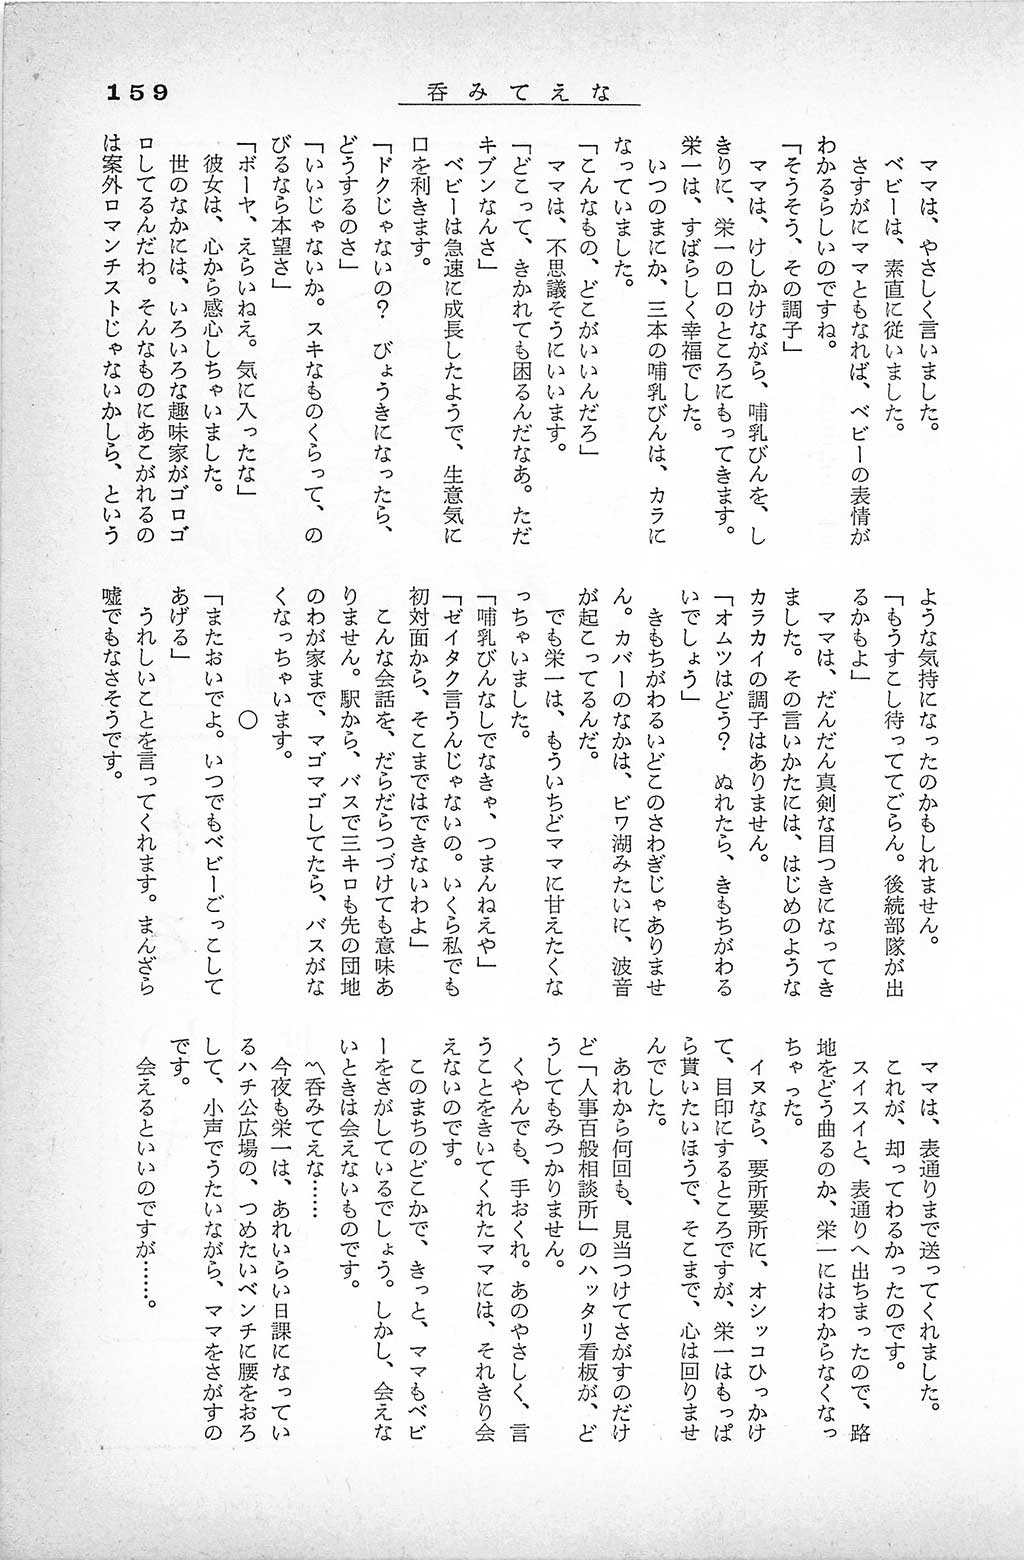 159
呑みてえな
ママは、やさしく言いました。
ベビーは、素直に従いました。
さすがにママともなれば、ベビーの表情が
わかるらしいのですね。
「そうそう、その調子」
ママは、けしかけながら、哺乳びんを、し
きりに、栄一の口のところにもってきます。
栄一は、すばらしく幸福でした。
いつのまにか、三本の哺乳びんは、カラに
なっていました。
「こんなもの、どこがいいんだろ」
ママは、不思議そうにいいます。
「どこって、きかれても困るんだなあ。ただ
キブンなんさ」
ベビーは急速に成長したようで、生意気に
口を利きます。
「ドクじゃないの？　びょうきになったら、
どうするのさ」
「いいじゃないか。スキなものくらって、の
びるなら本望さ」
「ボーヤ、えらいねえ。気に入ったな」
彼女は、心から感心しちゃいました。
世のなかには、いろいろな趣味家がゴロゴ
ロしてるんだわ。そんなものにあこがれるの
は案外ロマンチストじゃないかしら、という
ような気持になったのかもしれません。
「もうすこし待っててごらん。後続部隊が出
るかもよ」
ママは、だんだん真剣な目つきになってき
ました。その言いかたには、はじめのような
カラカイの調子はありません。
「オムツはどう？　ぬれたら、きもちがわる
いでしょう」
きもちがわるいどこのさわぎじゃありませ
ん。カバーのなかは、ビワ湖みたいに、波音
が起こってるんだ。
でも栄一は、もういちどママに甘えたくな
っちゃいました。
「哺乳びんなしでなきゃ、つまんねえや」
「ゼイタク言うんじゃないの。いくら私でも
初対面から、そこまではできないわよ」
こんな会話を、だらだらつづけても意味あ
りません。駅から、バスで三キロも先の団地
のわが家まで、マゴマゴしてたら、バスがな
くなっちゃいます。
〇
「またおいでよ。いつでもベビーごっこして
あげる」
うれしいことを言ってくれます。まんざら
嘘でもなさそうです。
ママは、表通りまで送ってくれました。
これが、却ってわるかったのです。
スイスイと、表通りへ出ちまったので、路
地をどう曲るのか、栄一にはわからなくなっ
ちゃった。
イヌなら、要所要所に、オシッコひっかけ
て、目印にするところですが、栄一はもっぱ
ら貰いたいほうで、そこまで、心は回りませ
んでした。
あれから何回も、見当つけてさがすのだけ
ど「人事百般相談所」のハッタリ看板が、ど
うしてもみつかりません。
くやんでも、手おくれ。あのやさしく、言
うことをきいてくれたママには、それきり会
えないのです。
このまちのどこかで、きっと、ママもベビ
ーをさがしているでしょう。しかし、会えな
いときは会えないものです。
〽呑みてえな……
今夜も栄一は、あれいらい日課になってい
るハチ公広場の、つめたいベンチに腰をおろ
して、小声でうたいながら、ママをさがすの
です。
会えるといいのですが……。